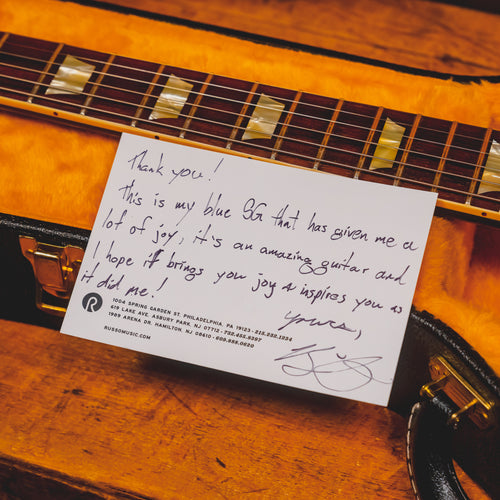 Thank you!
This is my blue SG that has given me a
lot of joy, it's an amazing guitar and
I hope it brings you joy & inspires you as
it did me!
yours,
R
1004 SPRING GARDEN ST. PHILADELPHIA, PA 19123 - 215.282.1234
619 LAKE AVE. ASBURY PARK, NJ 07712 - 732.455.8397
1989 ARENA DR. HAMILTON, NJ 08610 - 609.888.0620
RUSSOMUSIC.COM